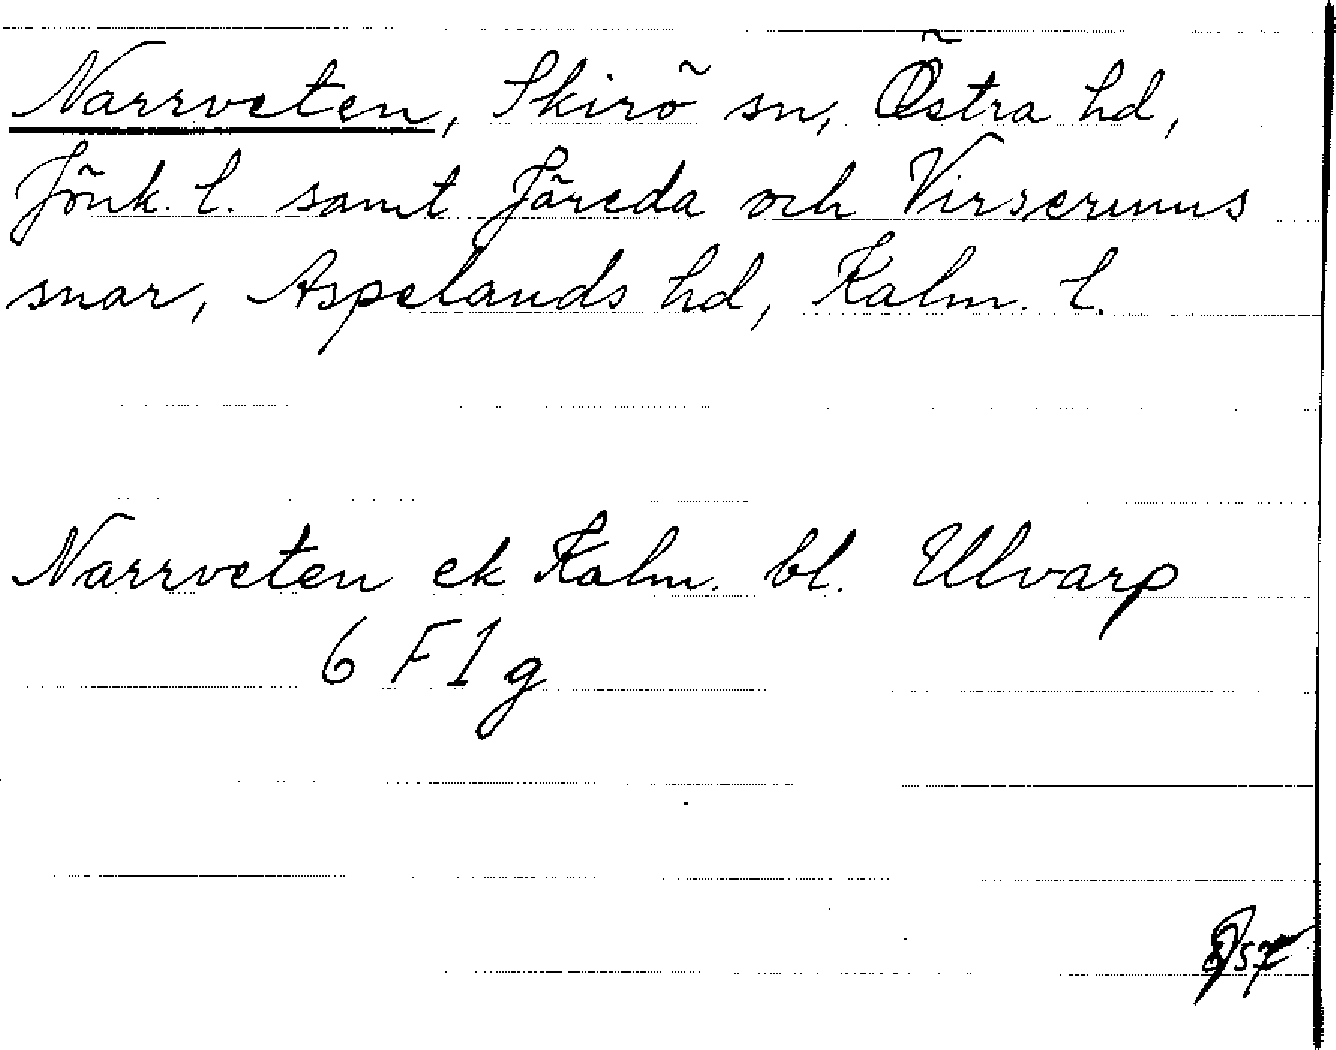 Narrveten, Skirö sn, Östra hd,
Jönk. l. samt Järeda och Virserums
snar, Aspelands hd, Kalm. l.
Narrveten ek Kalm. bl. Ulvarp
6 F 1 g